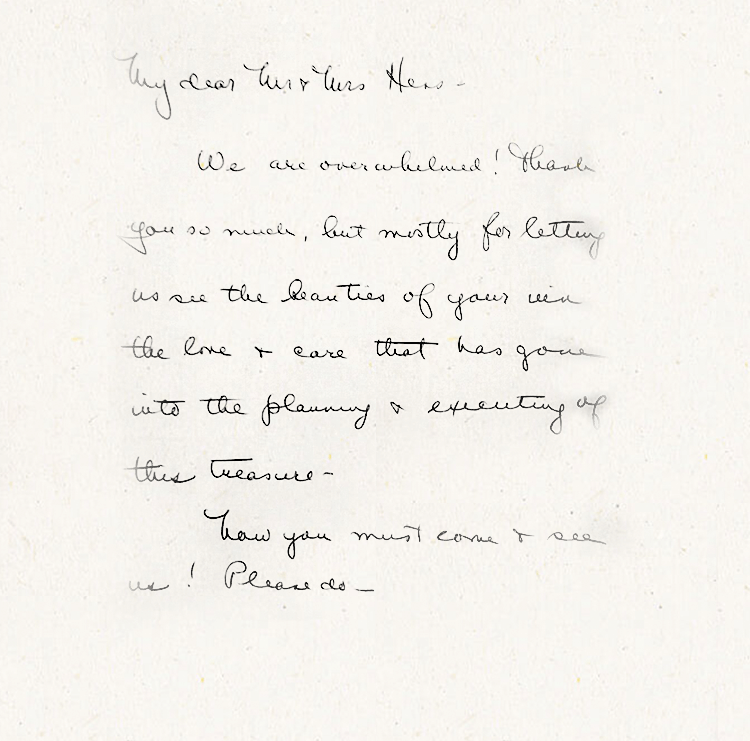 My dear Mr & Mrs Hess -
We are overwhelmed! Thank
you so much, but mostly for letting
us see the beauties of your
the love & care that has gone
into the planning & executing of
this treasure -
Now you must come & see
us! Please do -